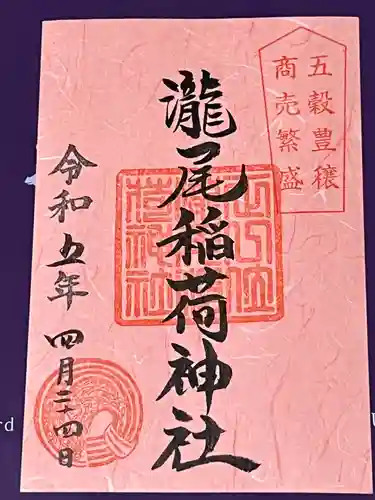 五穀豊穣
商売繁盛
瀧尾稲荷神社
令和五年四月二十四日
rd